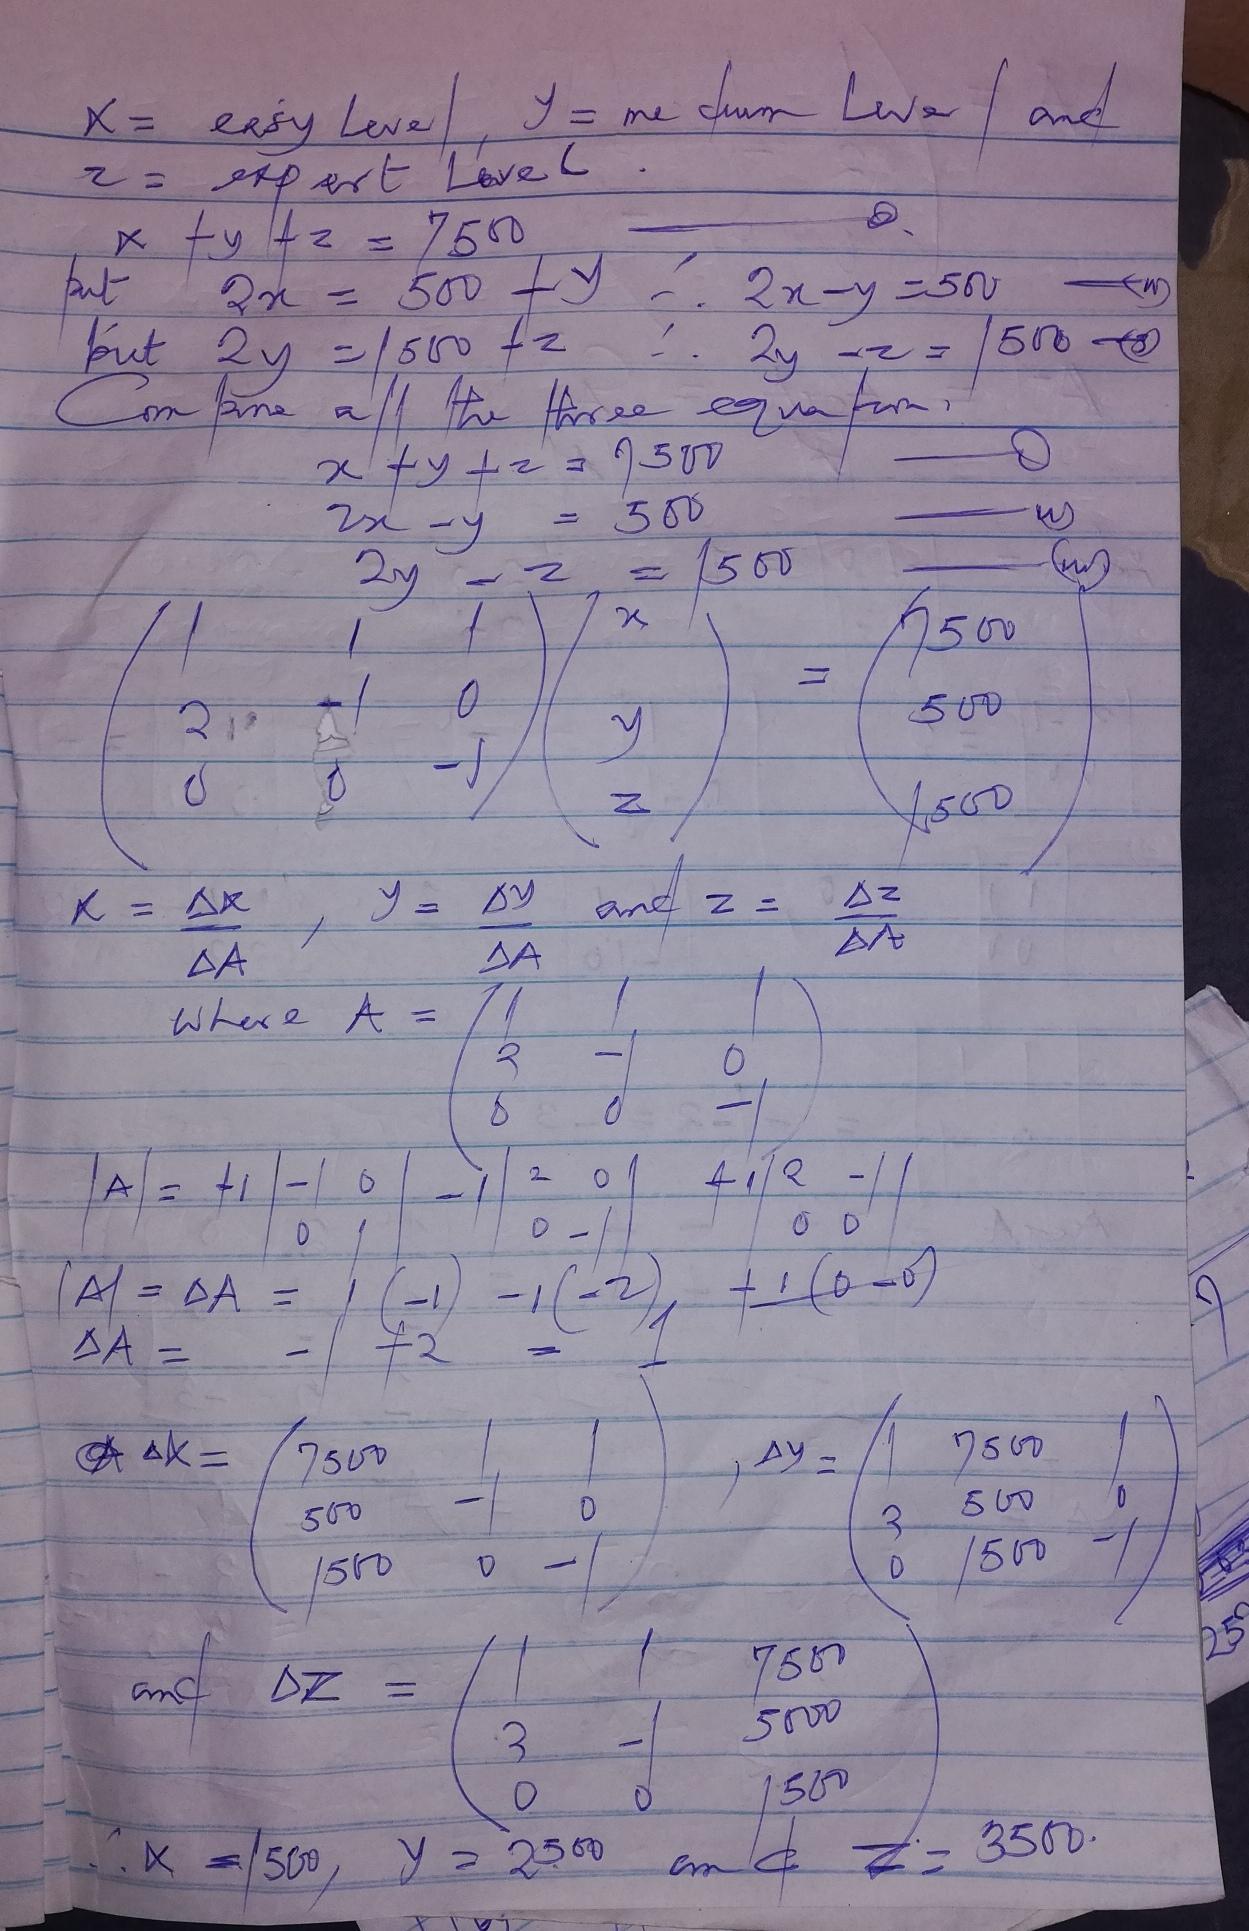 x = easy Level, y = medium Level and
z = expert Level.
x + y + z = 7500 ——
but 2x = 500 + y ∴ 2x - y = 500 — (ii)
but 2y = 1500 + z ∴ 2y - z = 1500 —
Combine all the three equation,
x + y + z = 7500 ——
2x - y = 500 —— ii)
2y - z = 1500 —— (iii)
( 1 1 1 ) ( x ) = ( 7500 )
2 -1 0 y 500
0 0 -1 z 1500
x = Δx/ΔA , y = Δy/ΔA and z = Δz/ΔA
where A = ( 1 1 1 )
2 -1 0
0 0 -1
|A| = +1 | -1 0 | -1 | 2 0 | +1 | 2 -1 |
0 1 0 -1 0 0
|A| = ΔA = 1(-1) -1(-2), +1(0-0)
ΔA = -1 +2 = 1
Δx = ( 7500 1 1 ) , Δy = ( 1 7500 1 )
500 -1 0 3 500 0
1500 0 -1 0 1500 -1
and ΔZ = ( 1 1 7500 )
3 -1 5000
0 0 1500
∴ x = 1500, y = 2500 and z = 3500.